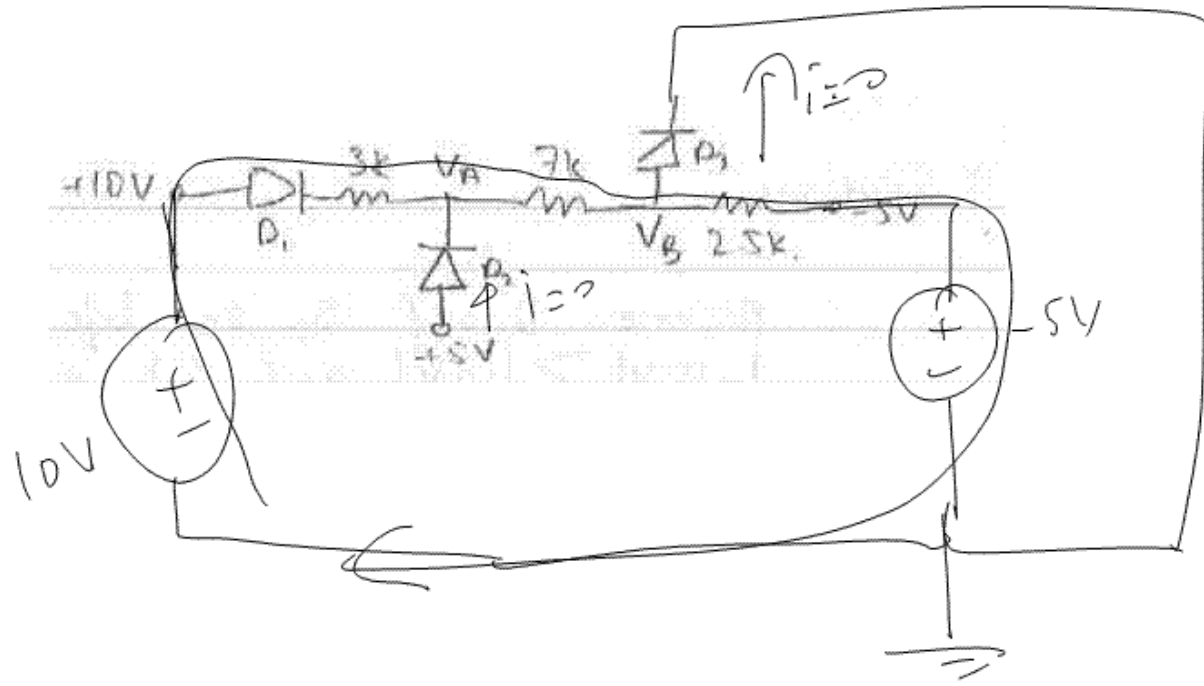 i=0
+10V 3k VA 7k D3
D1 VB 2.5k -5V
D2 i=0
+5V
+ -5V
-
10V +
-